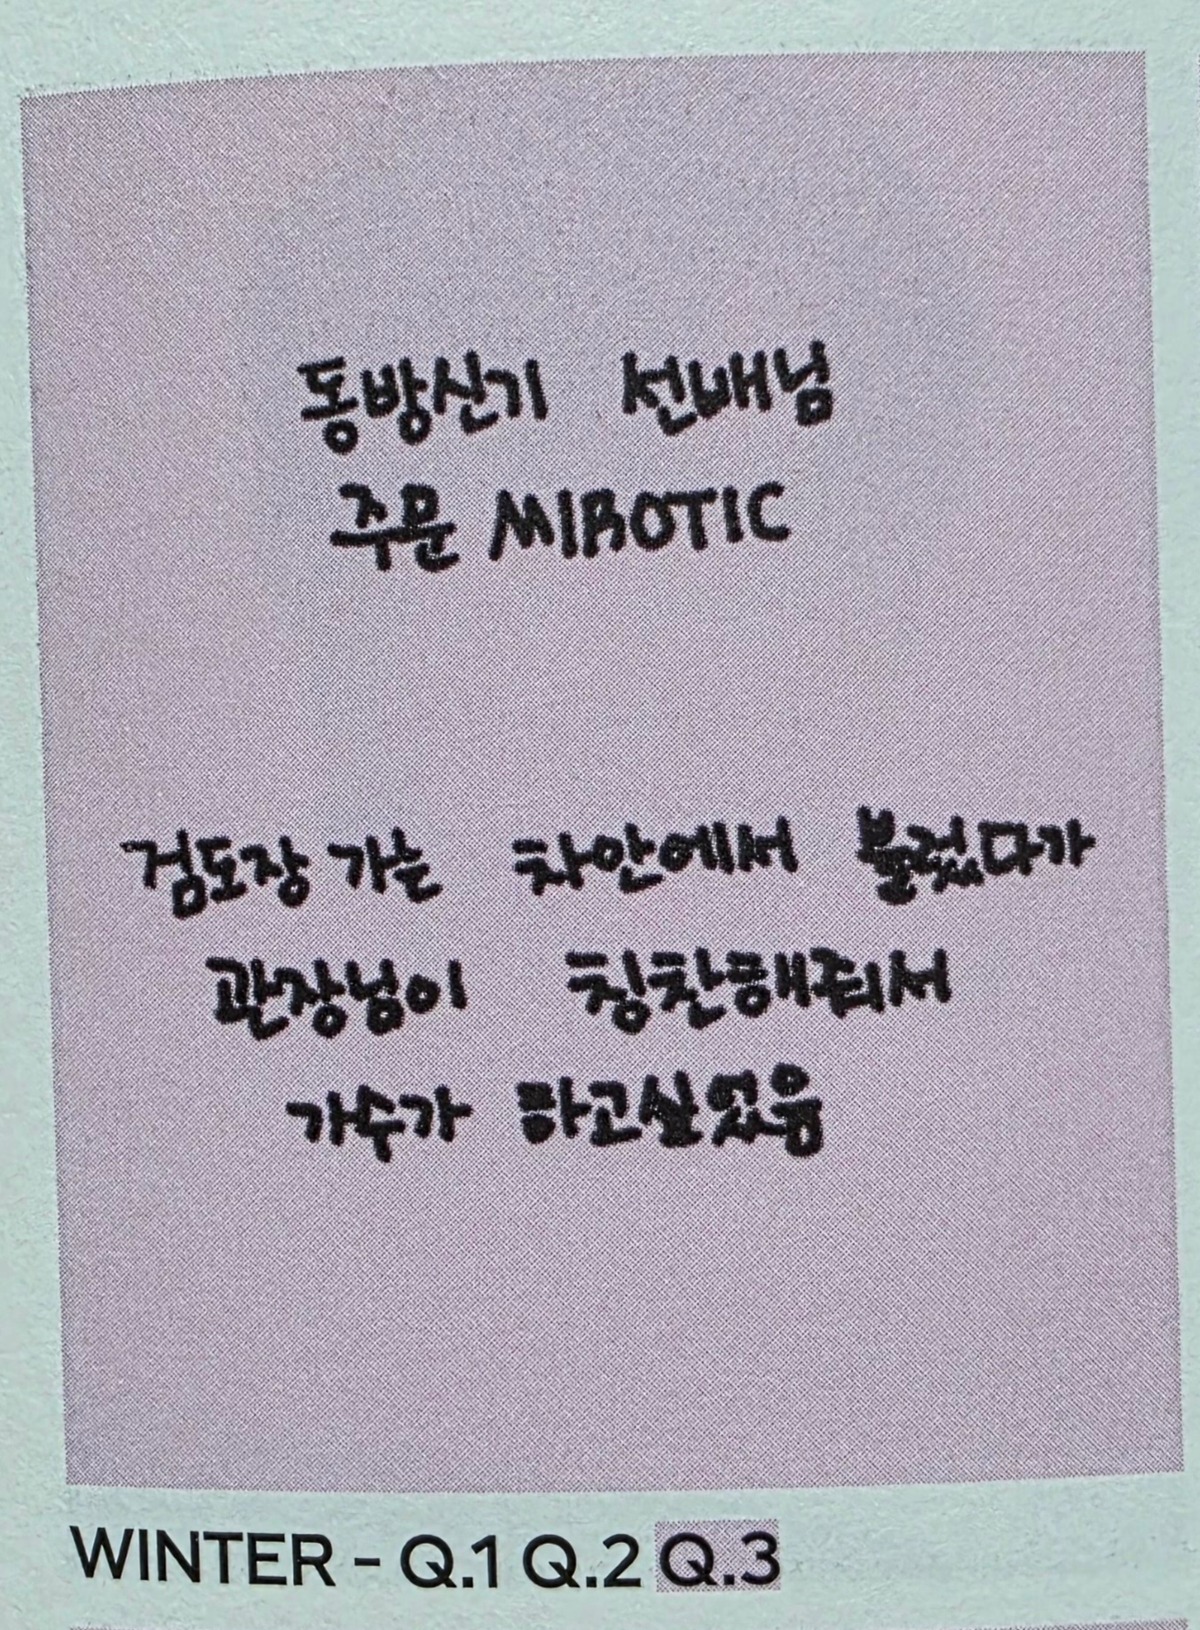 동방신기 선배님
주문 MIROTIC
검도장 가는 차안에서 불렀다가
관장님이 칭찬해줘서
가수가 하고싶었음
WINTER - Q.1 Q.2 Q.3